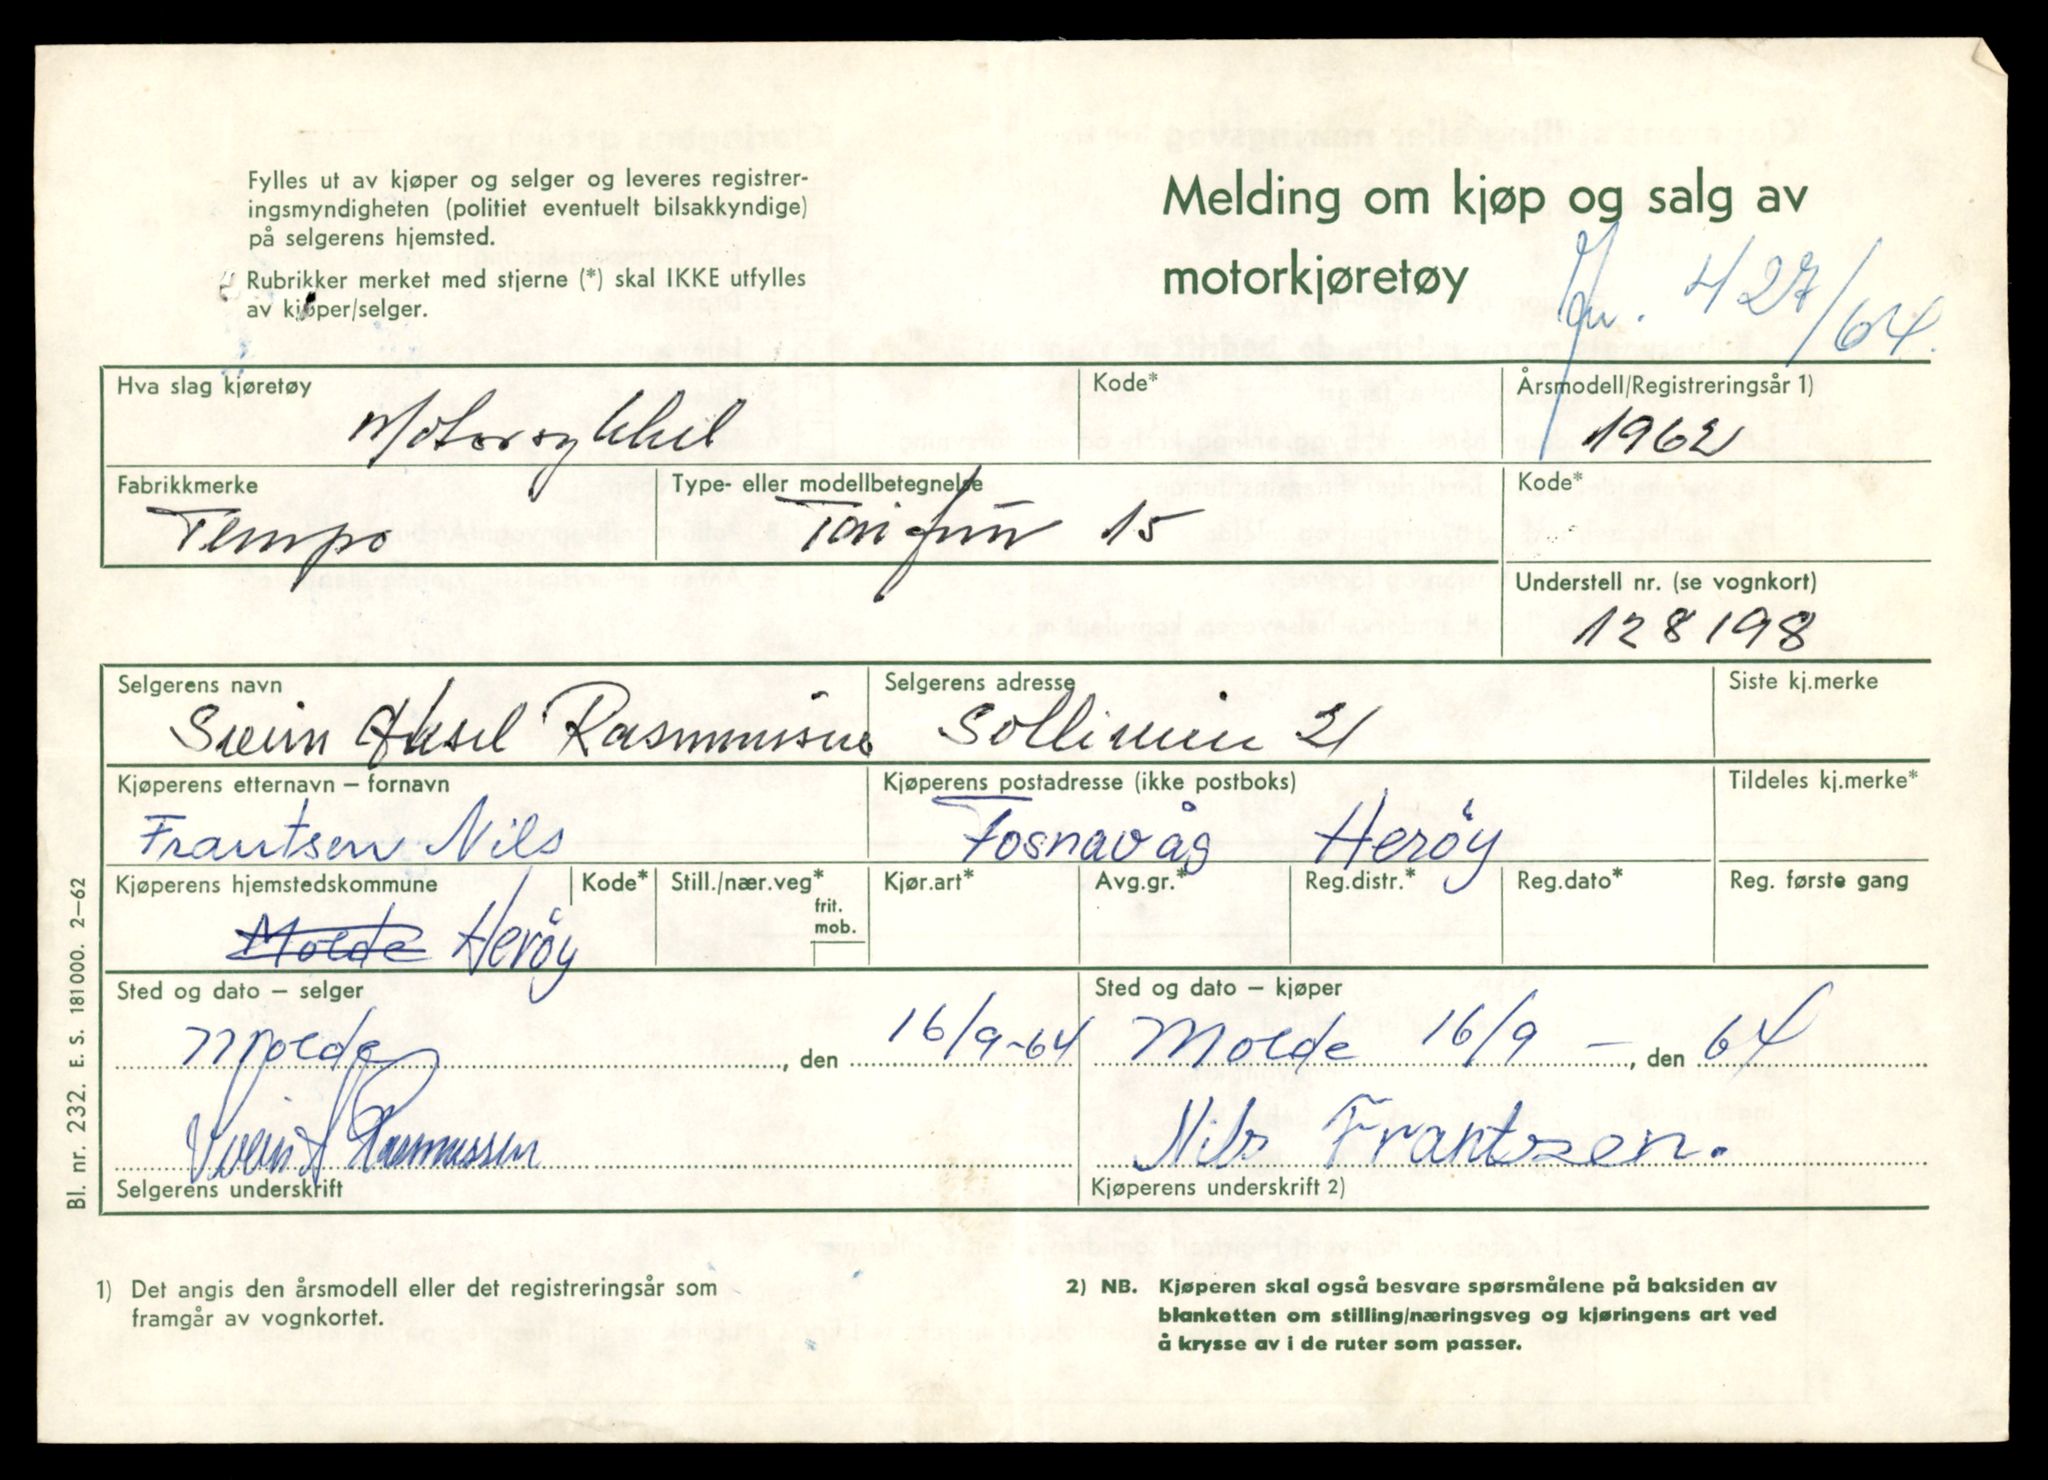 Fylles ut av kjøper og selger og leveres registrer-
ingsmyndigheten (politiet eventuelt bilsakkyndige)
på selgerens hjemsted.
Rubrikker merket med stjerne (*) skal IKKE utfylles
av kjøper/selger.
Melding om kjøp og salg av
motorkjøretøy
427/64.
Hva slag kjøretøy
Motorsykkel
Kode*
Årsmodell/Registreringsår 1)
1962
Fabrikkmerke
Tempo
Type- eller modellbetegnelse
Taifun 15
Kode*
Understell nr. (se vognkort)
128198
Selgerens navn
Svein Aksel Rasmussen
Selgerens adresse
21
Siste kj.merke
Kjøperens etternavn – fornavn
Frantsen Nils
Kjøperens postadresse (ikke postboks)
Fosnavåg Herøy
Tildeles kj.merke*
Kjøperens hjemstedskommune
Molde Herøy
Kode*
Still./nær.veg*
frit.
mob.
Kjør.art*
Avg.gr.*
Reg.distr.*
Reg.dato*
Reg. første gang
Sted og dato – selger
Molde, den 16/9-64
Svein A Rasmussen
Selgerens underskrift
Sted og dato – kjøper
Molde 16/9 –, den 64
Nils Frantzen.
Kjøperens underskrift 2)
1) Det angis den årsmodell eller det registreringsår som
framgår av vognkortet.
2) NB. Kjøperen skal også besvare spørsmålene på baksiden av
blanketten om stilling/næringsveg og kjøringens art ved
å krysse av i de ruter som passer.
Bl. nr. 232. E. S. 181000. 2–62